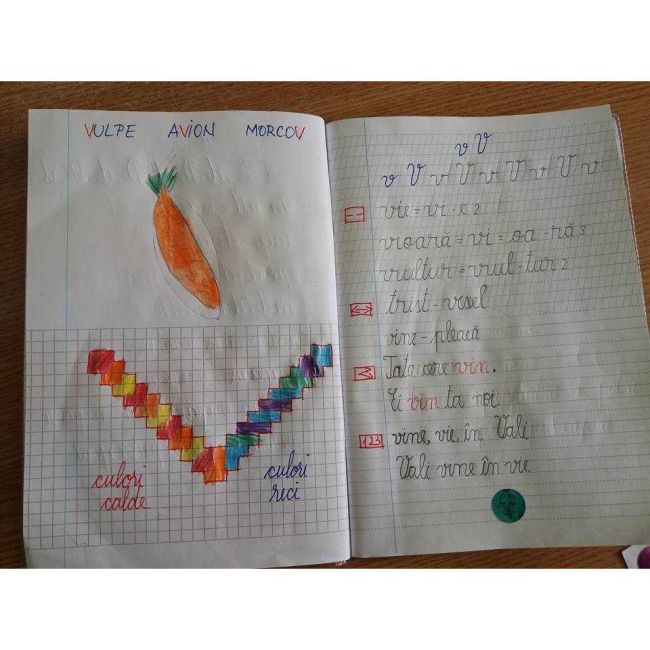 VULPE AVION MORCOV
culori
calde
culori
reci
v V
v V v V v V v V v
vie = vi - e 2
vioară = vi - oa - ră 3
vultur = vul - tur 2
trist - vesel
vine - pleacă
Tata are vin.
Ei vin la noi.
1,2,3 vine, vie, în Vali
Vali vine în vie.